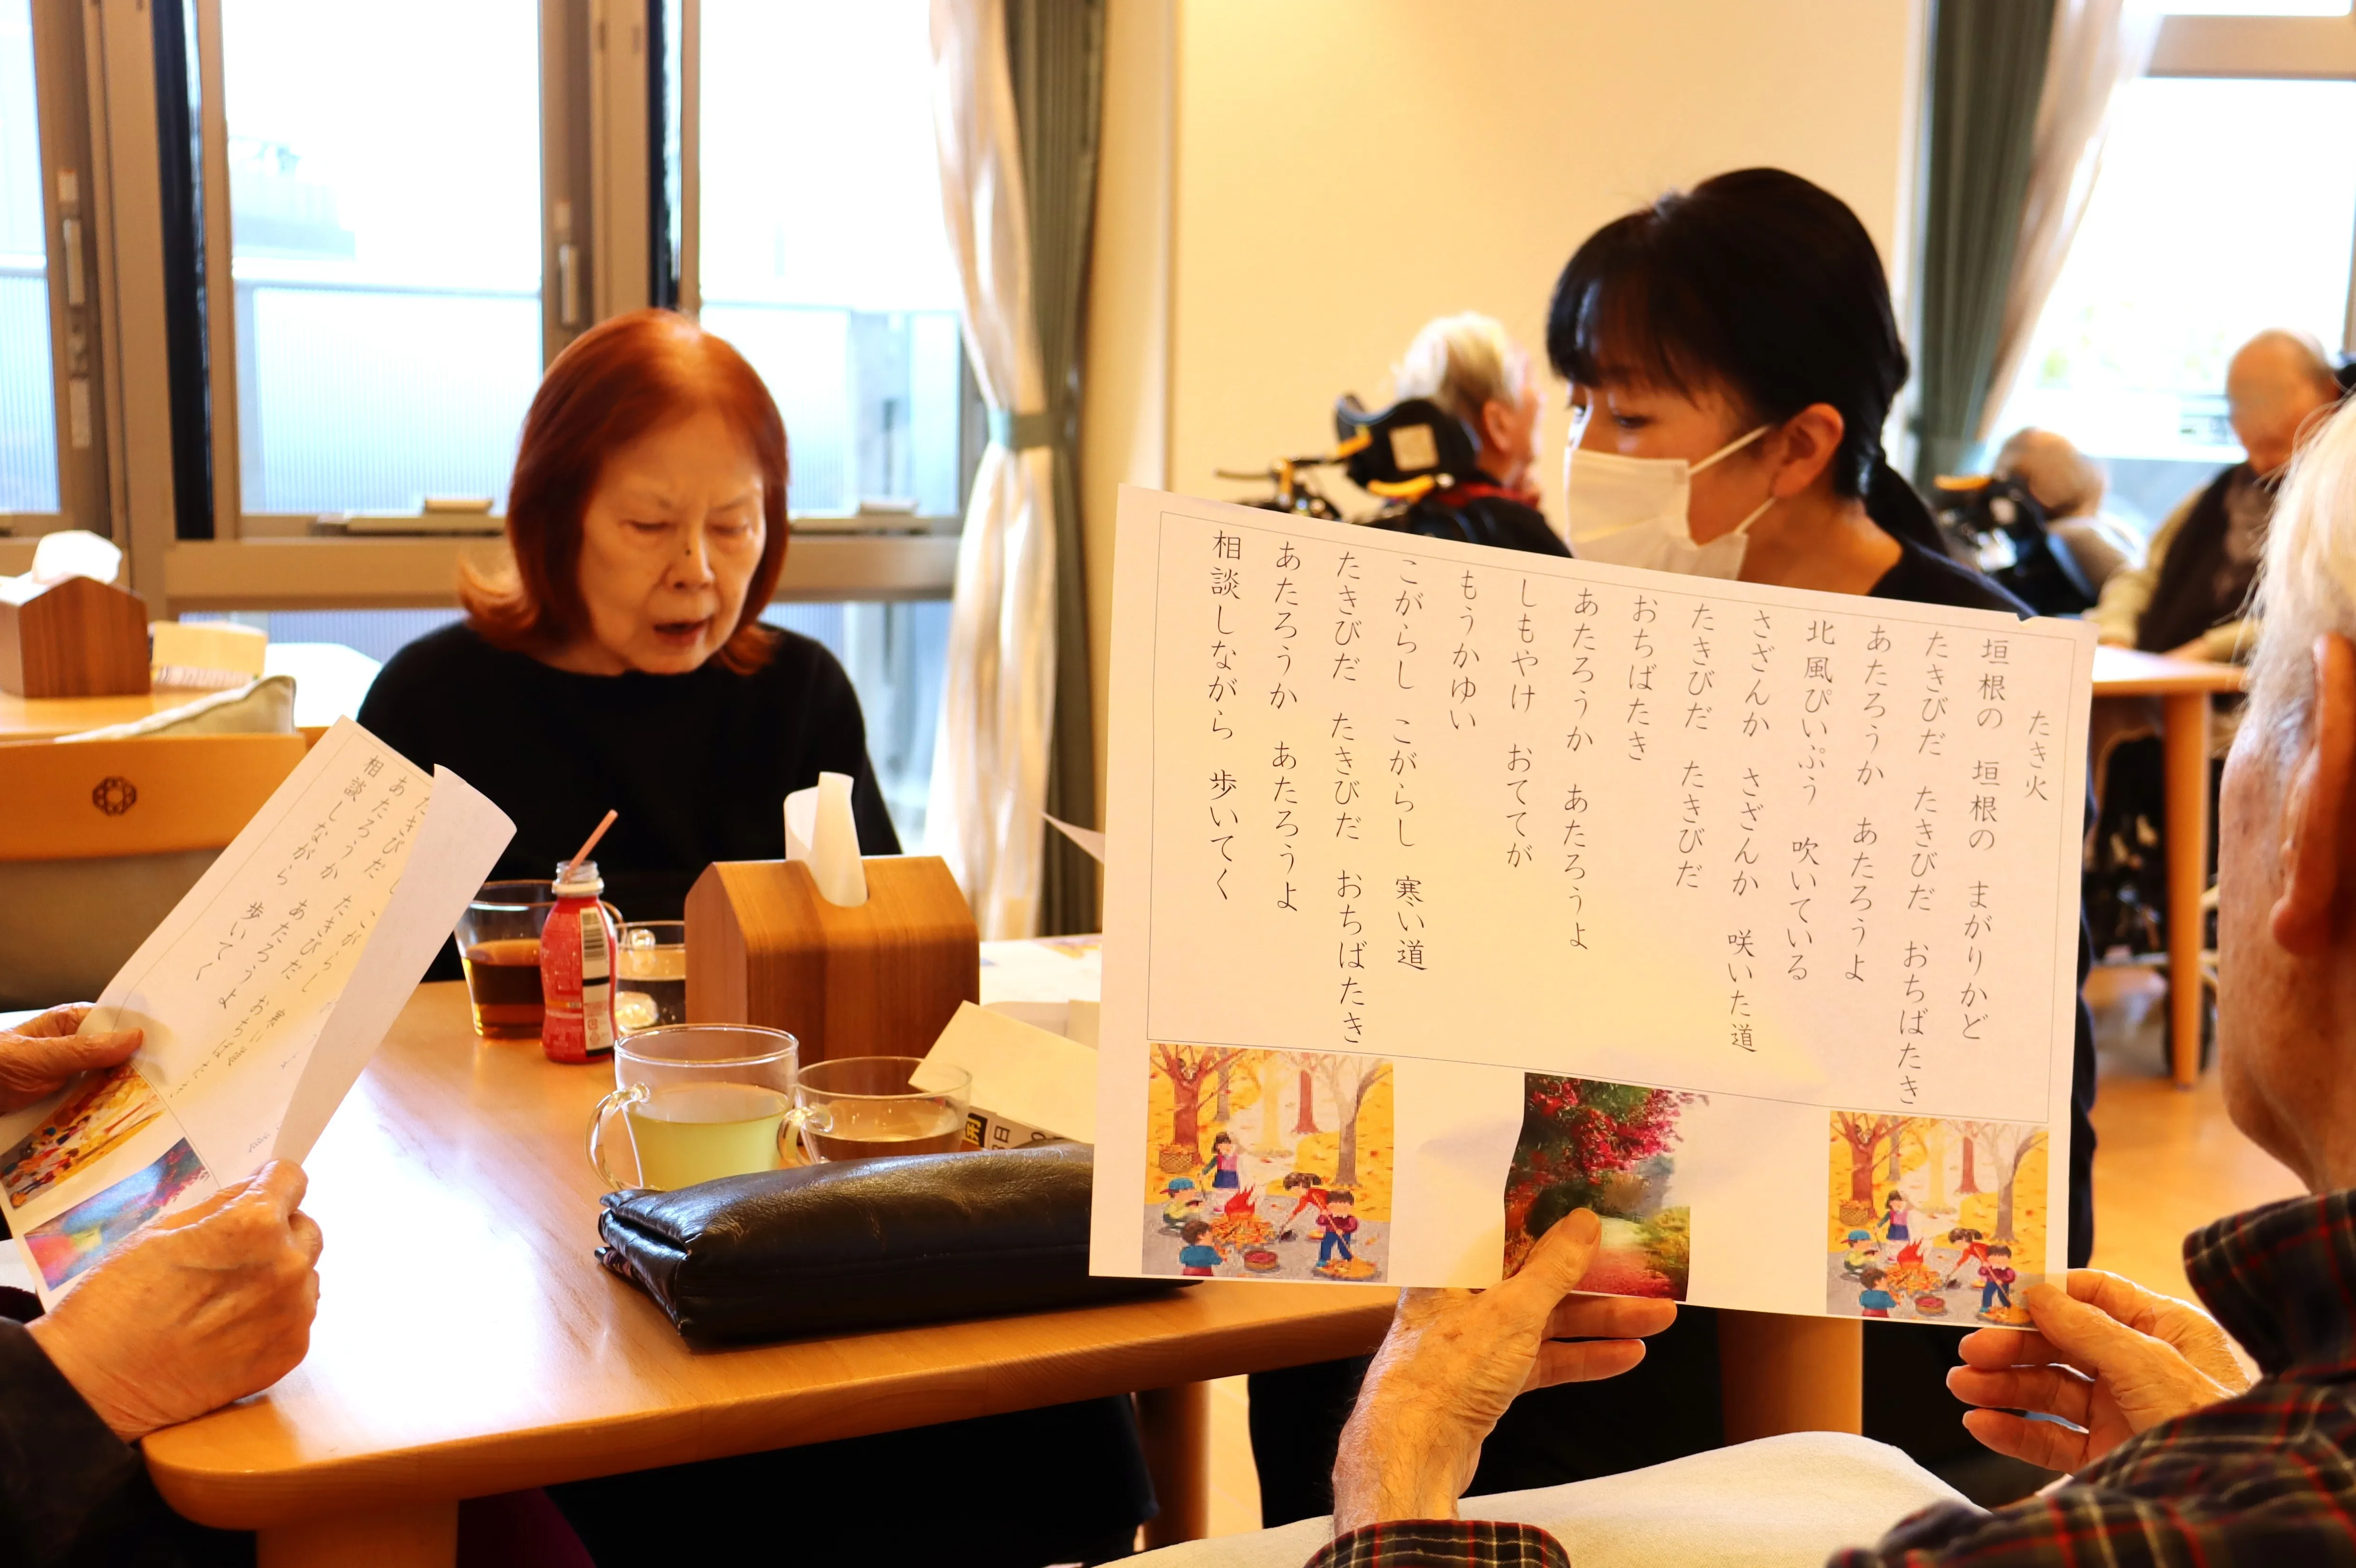 たき火
垣根の 垣根の まがりかど
たきびだ たきびだ おちばたき
あたろうか あたろうよ
北風ぴいぷう 吹いている
さざんか さざんか 咲いた道
たきびだ たきびだ
おちばたき
あたろうか あたろうよ
しもやけ おててが
もうかゆい
こがらし こがらし 寒い道
たきびだ たきびだ おちばたき
あたろうか あたろうよ
相談しながら 歩いてく
こがらし
たきびだ たきびだ おちばたき
あたろうか あたろうよ
相談しながら 歩いてく